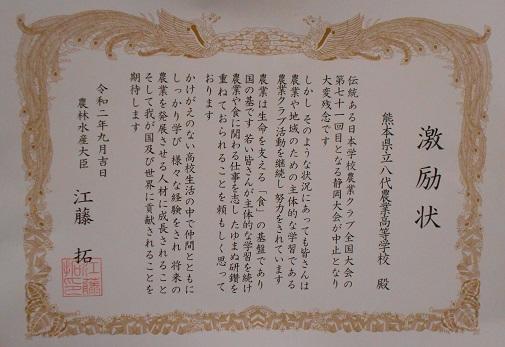 激励状
熊本県立八代農業高等学校 殿
伝統ある日本学校農業クラブ全国大会の
第七十一回目となる静岡大会が中止となり
大変残念です
しかし そのような状況にあっても皆さんは
農業や地域のための主体的な学習である
農業クラブ活動を継続し 努力をされています
農業は生命を支える「食」の基盤であり
国の基です 若い皆さんが主体的な学習を続け
農業や食に関わる仕事を志し たゆまぬ研鑽を
重ねておられることを頼もしく思って
おります
かけがえのない高校生活の中で仲間とともに
しっかり学び 様々な経験をされ 将来の
農業を発展させる人材に成長されること
そして我が国及び世界に貢献されることを
期待します
令和二年九月吉日
農林水産大臣 江藤 拓
江藤拓印